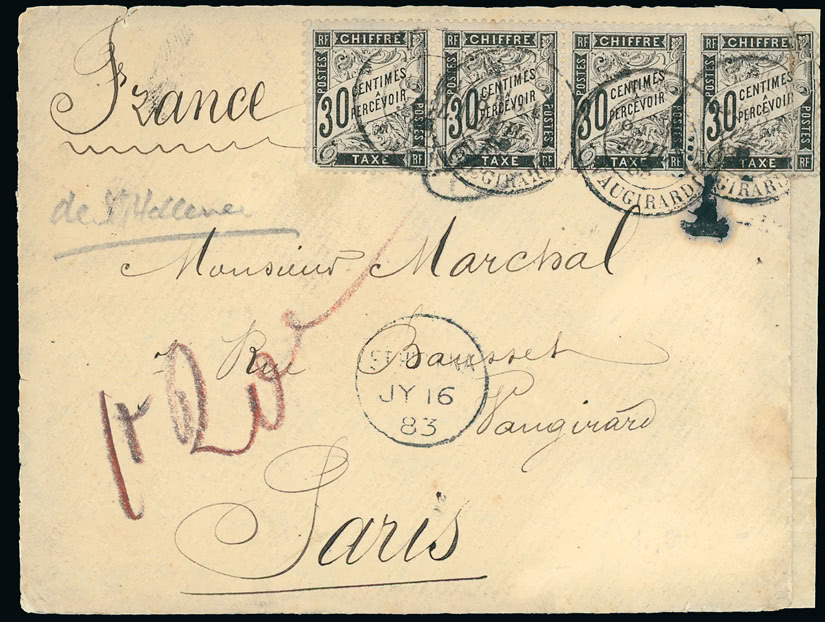 France
RF CHIFFRE RF CHIFFRE RF CHIFFRE RF CHIFFRE
POSTES 30 CENTIMES À PERCEVOIR POSTES
POSTES 30 CENTIMES À PERCEVOIR POSTES
POSTES 30 CENTIMES À PERCEVOIR POSTES
POSTES 30 CENTIMES À PERCEVOIR POSTES
TAXE RF TAXE RF TAXE RF TAXE RF
VAUGIRARD
T
Monsieur Marchal
Rue Bausset
Vaugirard
Paris
JY 16
83
1f 20c